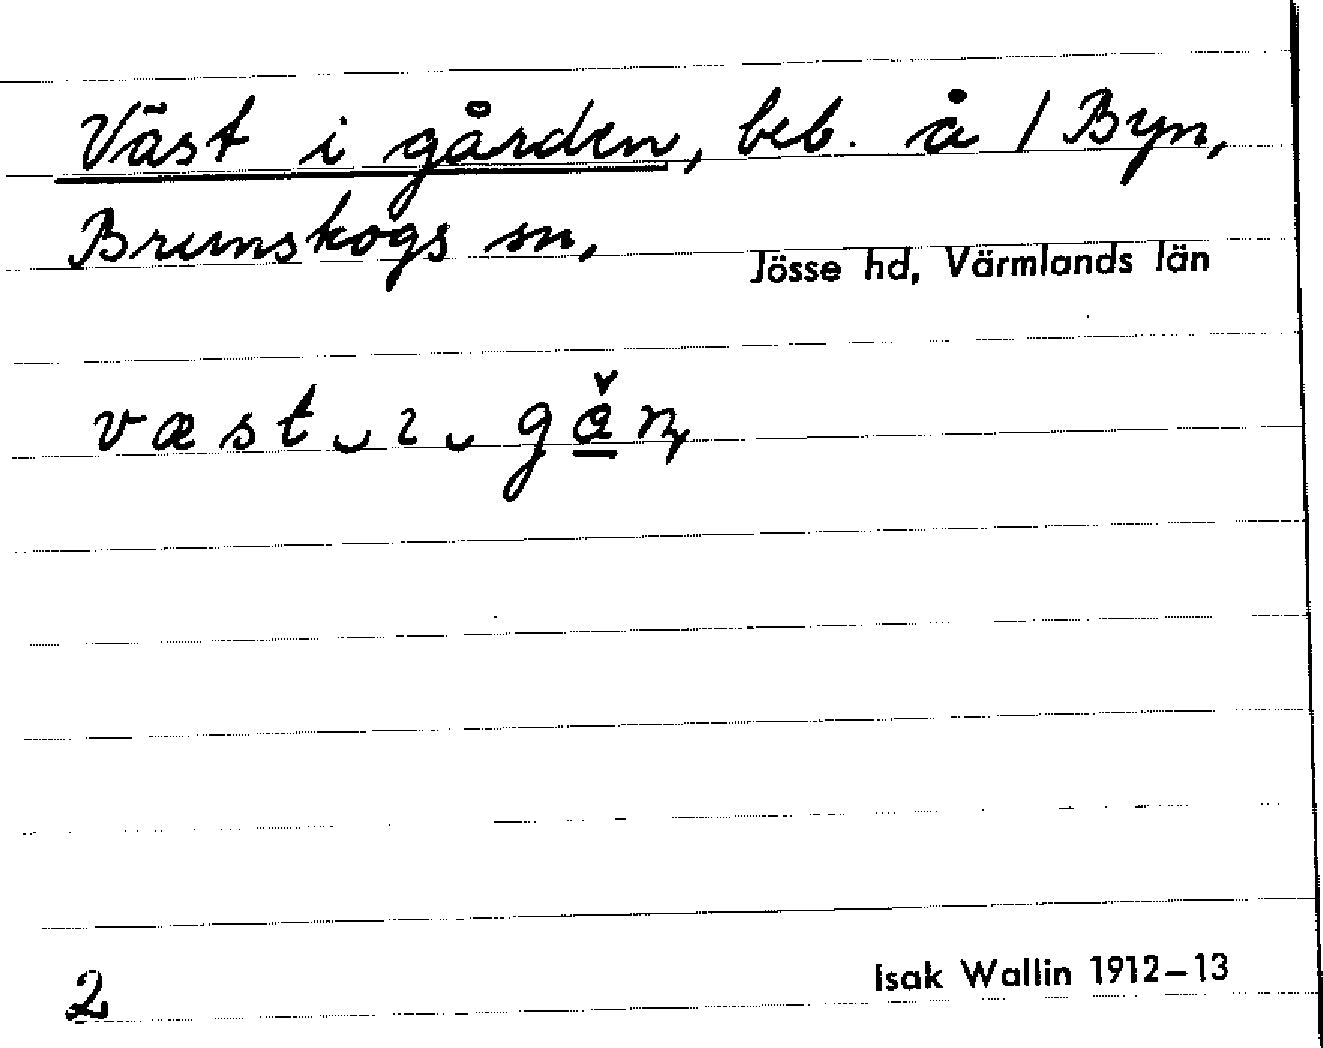 Väst i gården, beb. å / Byn,
Brunskogs sn,
Jösse hd, Värmlands län
væst ‿ ı ‿ gå̲̌n
2
Isak Wallin 1912–13